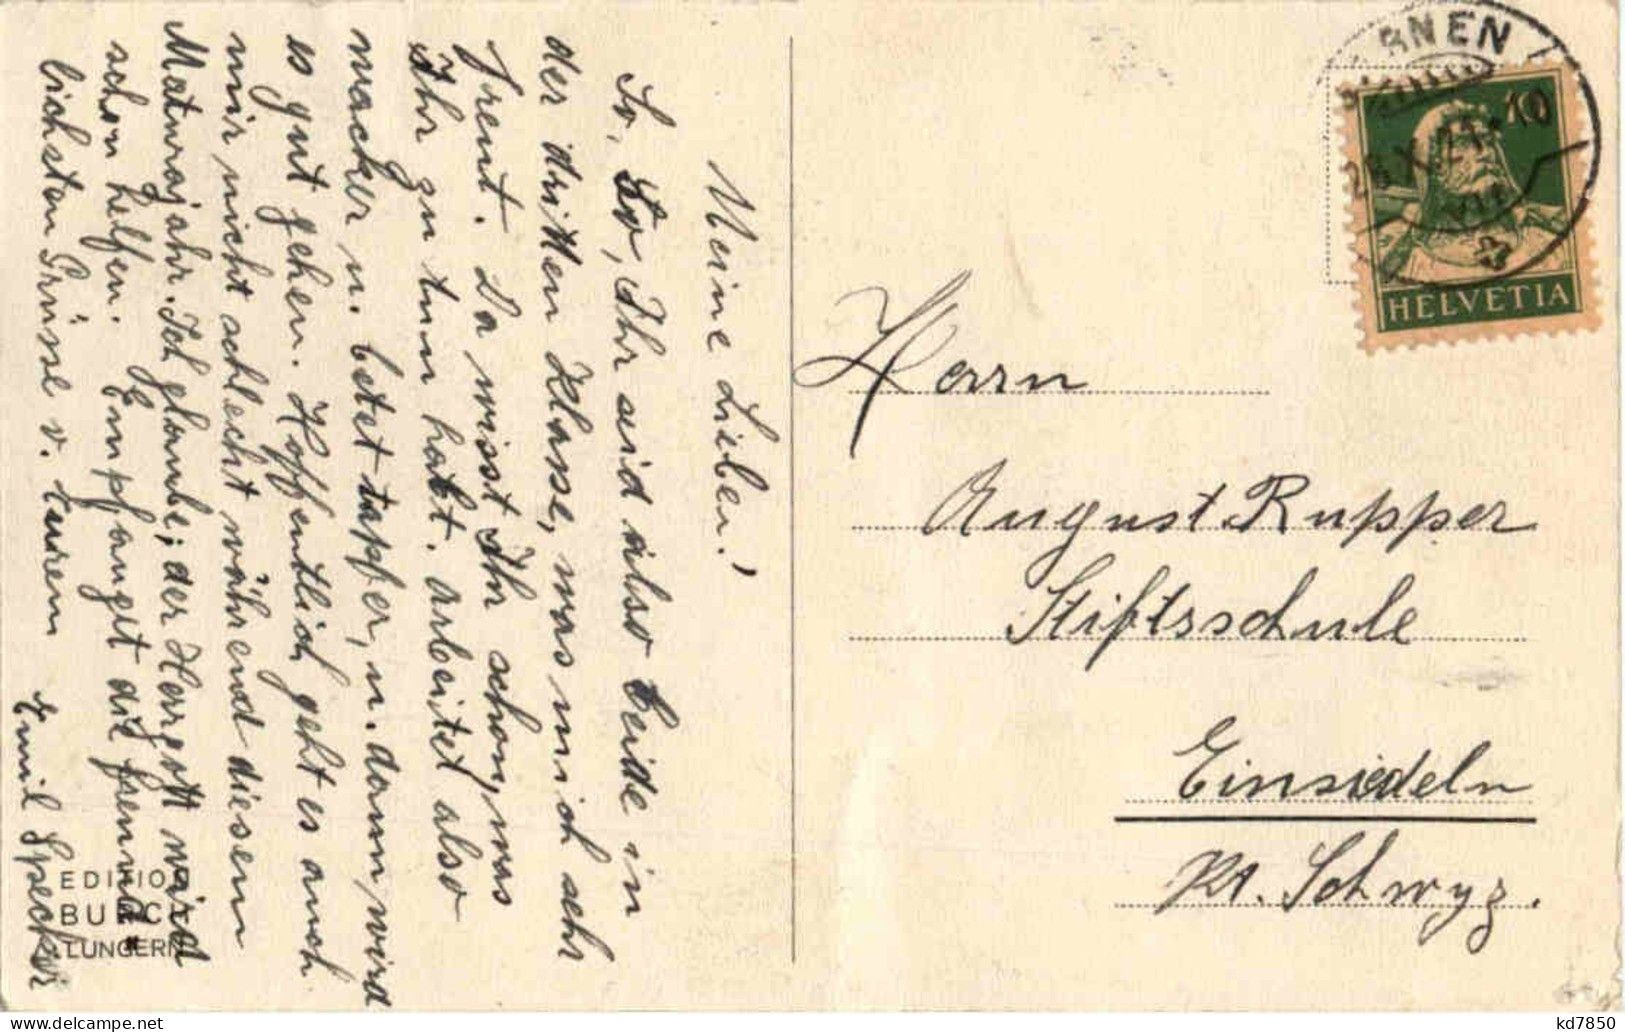 Meine Lieben!
So, so, Ihr seid also beide in
der dritten Klasse, was mich sehr
freut. Da wisst Ihr schon, was
Ihr zu tun habt. arbeitet also
wacker u. betet tapfer, u. dann wird
es gut gehen. Hoffentlich geht es auch
mir nicht schlecht während diesem
Maturajahr. Ich glaube; der Herrgott wird
schon helfen. Empfanget die freund
lichsten Grüsse v. eurem
Emil Specker
EDITION
BURCH
LUNGERN
RNEN
10
HELVETIA
Herrn
August Rupper
Stiftsschule
Einsiedeln
Kt. Schwyz.
kd7850